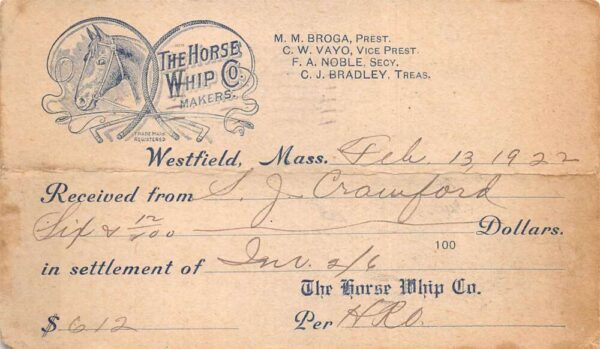 THE HORSE
WHIP CO.
MAKERS.
TRADE MARK
REGISTERED
M. M. BROGA, PREST.
C. W. VAYO, VICE PREST.
F. A. NOBLE, SECY.
C. J. BRADLEY, TREAS.
Westfield, Mass. Feb 13, 1922
Received from S. J. Crawford
Six & 12/100 Dollars.
100
in settlement of Inv. 2/6
The Horse Whip Co.
$ 6 12 Per